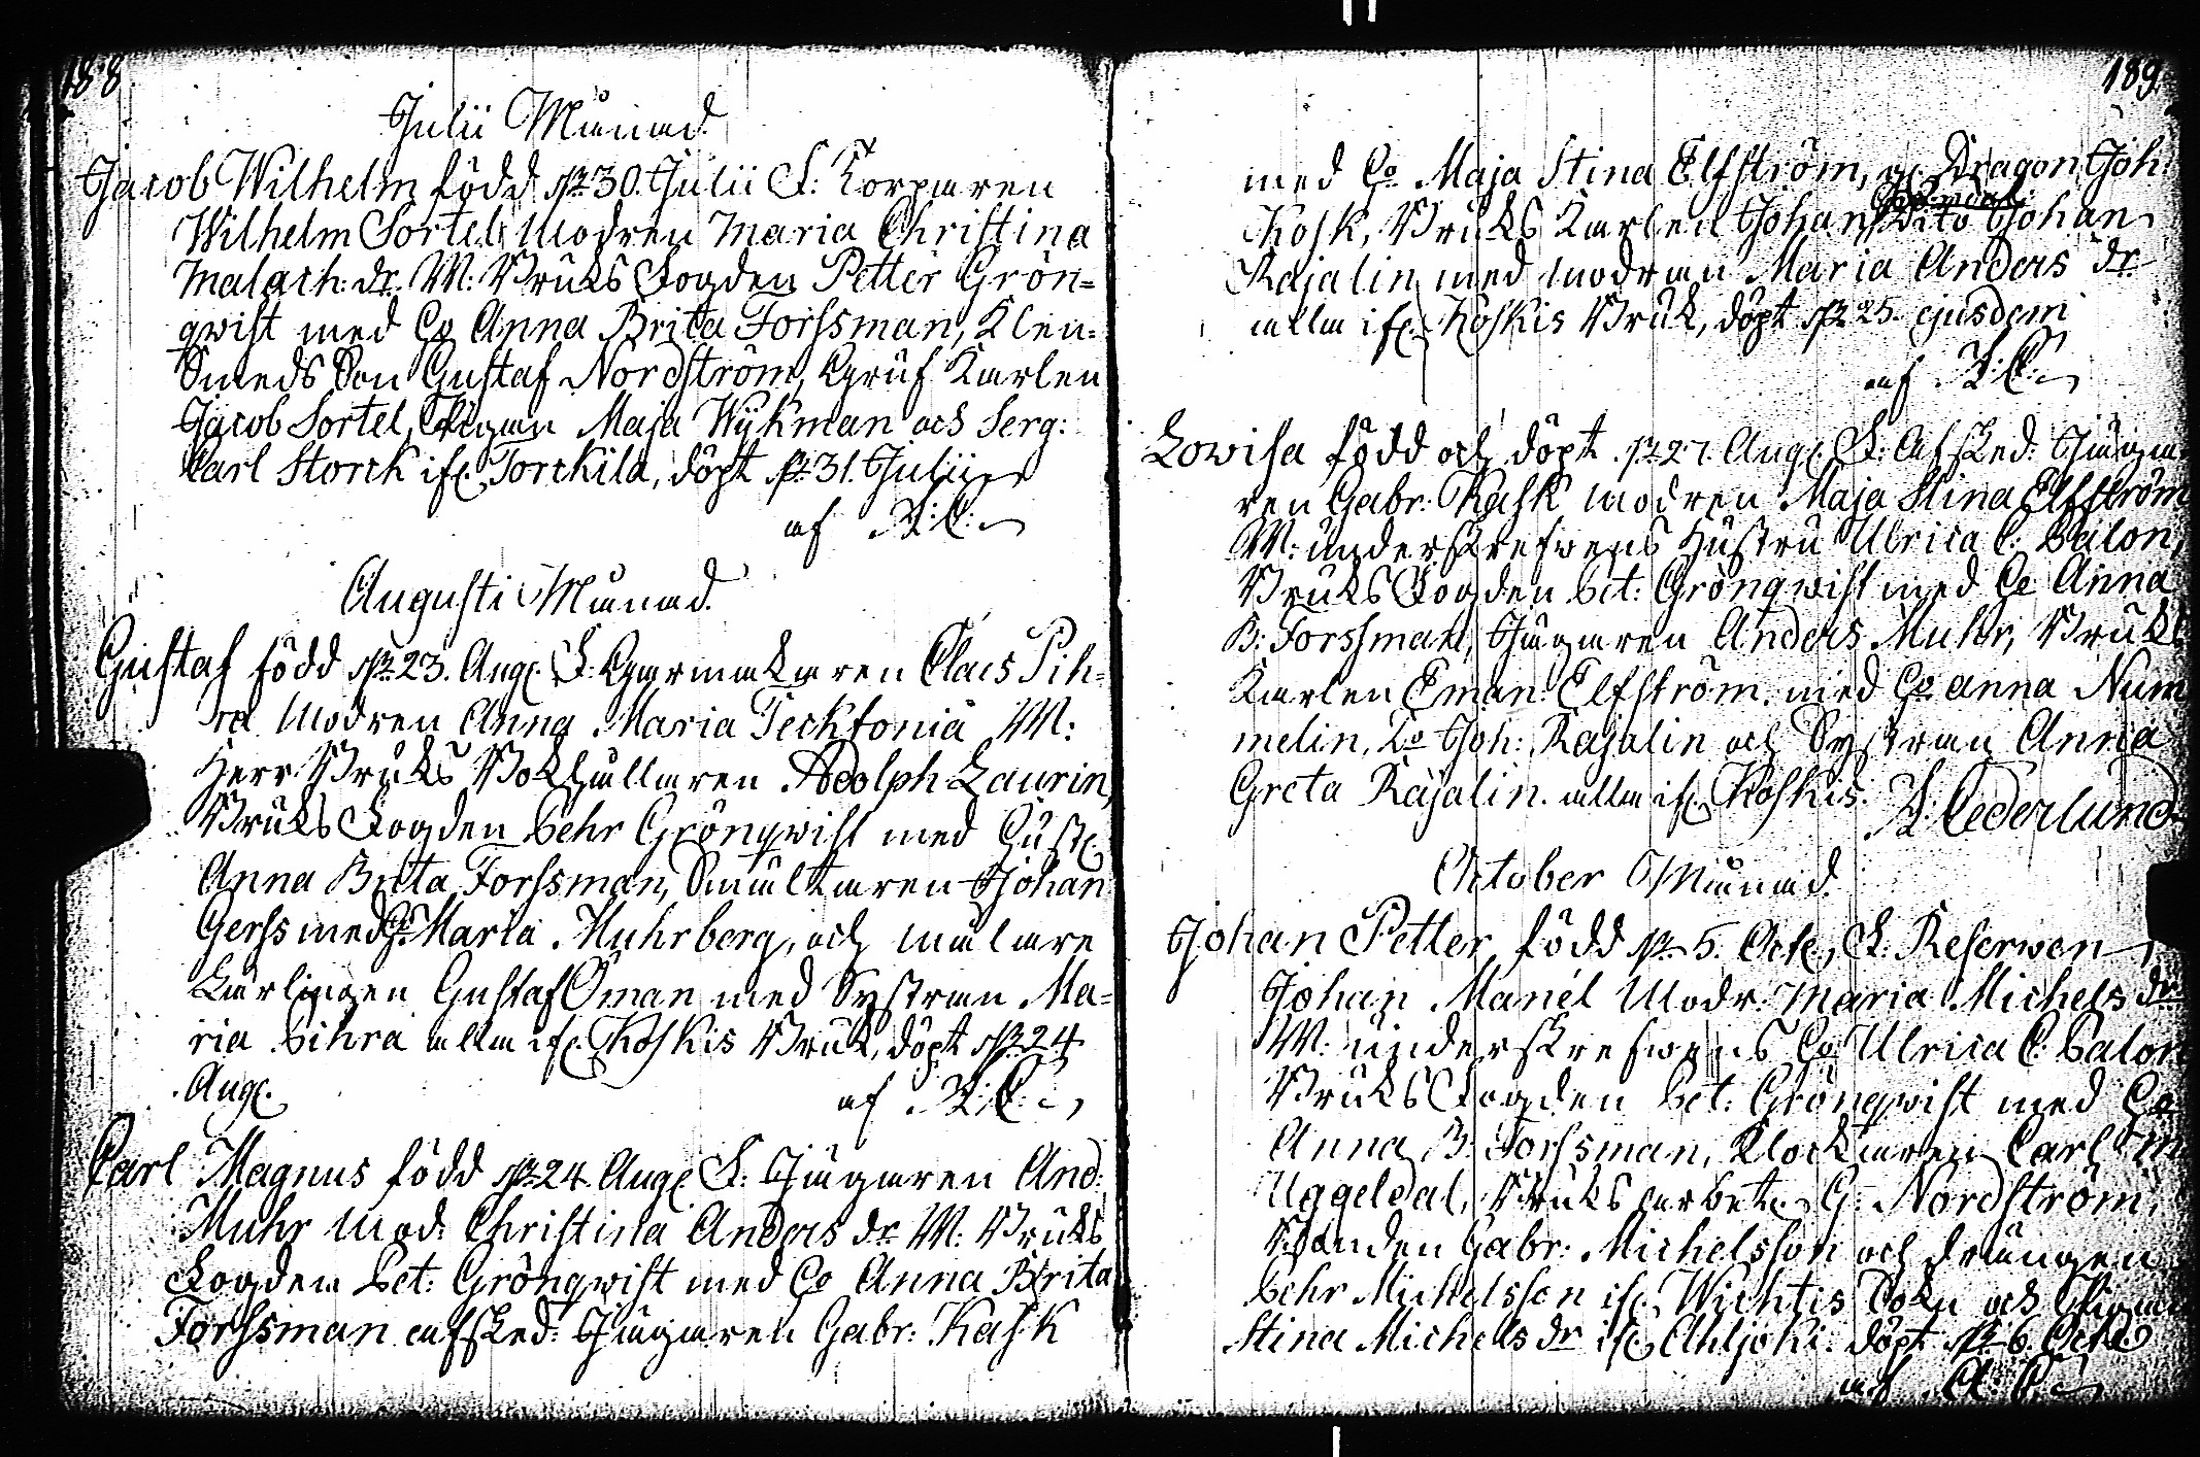 188
Julii Månad.
Jacob Wilhelm född d. 30. Julii F: Korparen
Wilhelm Sortel, Modren Maria Christina
Malach: dr. W: Bruks Fogden Petter Grön=
qwist med Ho Anna Brita Forssman, Klen=
Smeds Son Gustaf Nordström, Gruf Karlen
Jacob Sortel, Pigan Maja Wijkman och Serg:
Carl Storck ifr. Torckila, döpt d. 31. Julii
af A: C:
Augusti Månad.
Gustaf född d. 23. Aug. F: Garmakaren Claes Pih=
ra Modren Anna Maria Tecktonia W:
Herr Bruks Bokhållaren Adolph Laurin,
Bruks Fogden Pehr Grönqwist med Hust.
Anna Brita Forssman, Smältaren Johan
Gerss med H. Maria Muhrberg, och målare
Lärlingen Gustaf Öman med Systran Ma=
ria Pihra alla ifr. Koskis Bruk, döpt d. 24
Aug.
af A: C:
Carl Magnus född d. 24 Aug. F: Jägaren And:
Muhr Mod: Christina Anders dr W: Bruks
Fogden Pet: Grönqwist med Ho Anna Brita
Forssman afsked: Jägaren Gabr: Kask
189
med Ho Maja Stina Elfström, Dragon Joh:
Kosk, Bruks Karlen Johan dito Johan
Rajalin med modran Maria Anders dr
alla ifr. Koskis Bruk, döpt d. 25. ejusdem
af A: C:
Lowisa född och döpt d. 27. Aug. F: Afsked: Jäga=
ren Gabr: Kask modren Maja Stina Elfström
W: underskrefwens Hustru Ulrica C: Palon,
Bruks Fogden Pet: Grönqwist med Ho Anna
B: Forssman, Jägaren Anders Muhr, Bruks
Karlen Eman: Elfström med Ho Anna Num
melin, Do Joh: Rajalin och Systran Anna
Greta Rajalin alla ifr. Koskis.
A: Cederlund
October Månad.
Johan Petter född d. 5. Oct., F: Reserwen
Johan Manél Modr: Maria Michels dr
W: underskrefwens Ho Ulrica C: Palon
Bruks Fogden Pet: Grönqwist med Ho
Anna B: Forssman, Klockaren Carl M
Uggeldal, Bruks arbet. G: Nordström,
Bonden Gabr: Michelsson och drängen
Pehr Michelsson ifr. Wichtis Sokn och Pigan
Stina Michels dr ifr. Ahljoki. döpt d. 6. Oct.
af A: C: